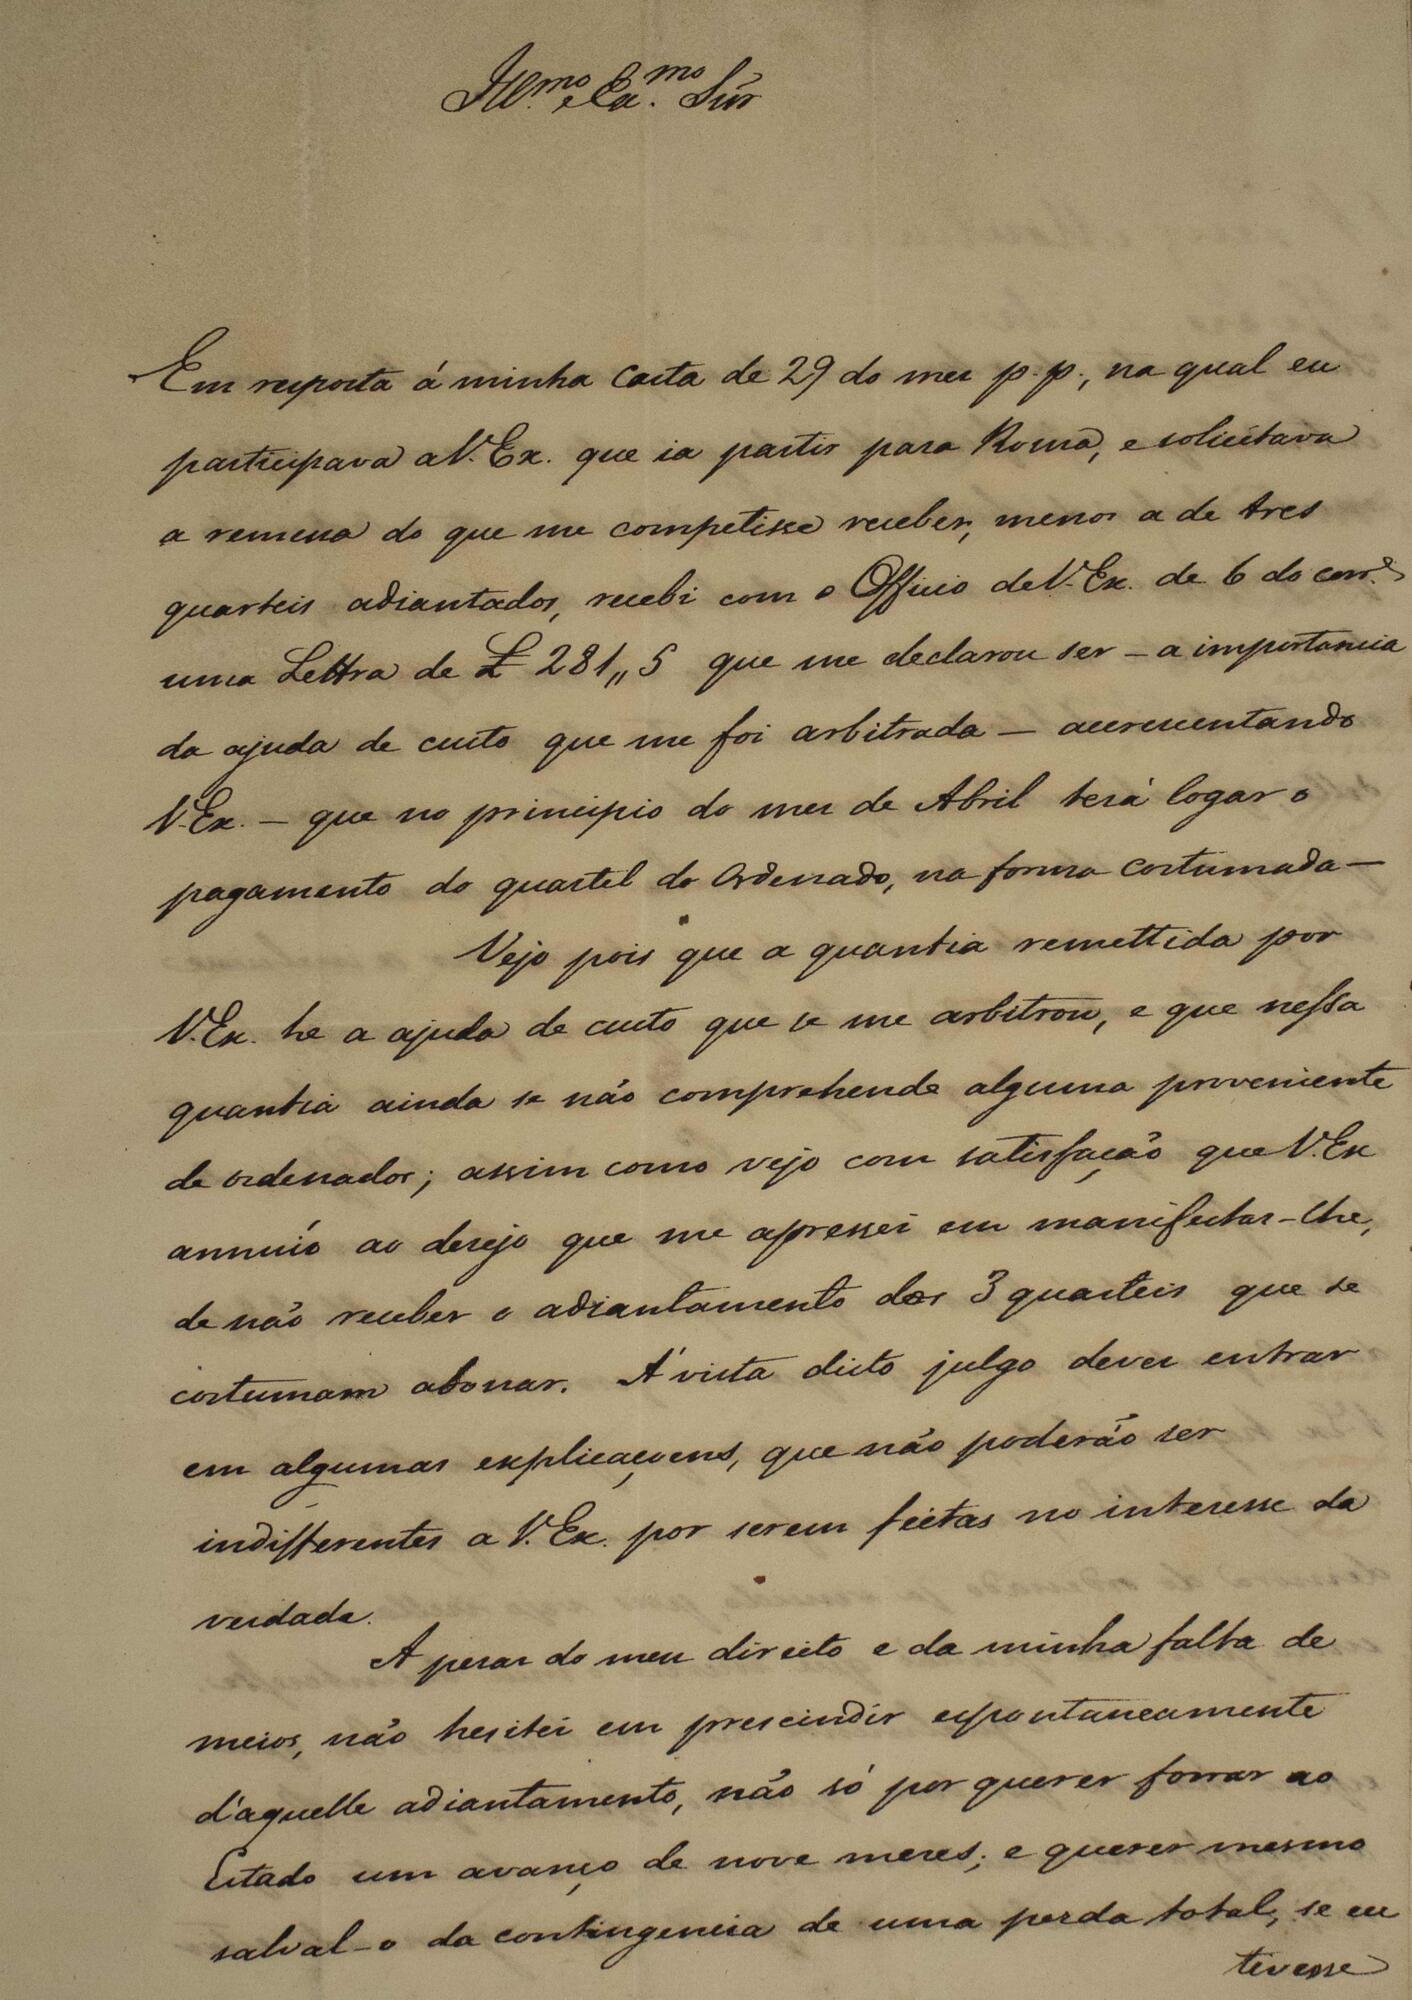 Ill.mo e Ex.mo Snr
Em resposta á minha carta de 29 do mez p.p., na qual eu
participava a V. Ex. que ia partir para Roma, e solicitava
a remessa do que me competisse receber, menos a de tres
quarteis adiantados, recebi com o Officio de V. Ex. de 6 do corr.e
uma Lettra de £ 281,,5 que me declarou ser — a importancia
da ajuda de custo que me foi arbitrada — accrescentando
V. Ex. — que no principio do mez de Abril terá logar o
pagamento do quartel do Ordenado, na forma costumada —
Vejo pois que a quantia remettida por
V. Ex. he a ajuda de custo que se me arbitrou, e que nessa
quantia ainda se não comprehende alguma proveniente
de ordenados; assim como vejo com satisfação que V. Ex
annuío ao desejo que me apressei em manifestar-lhe,
de não receber o adiantamento dos 3 quarteis que se
costumam abonar. Á vista disto julgo dever entrar
em algumas explicaçoens, que não poderão ser
indifferentes a V. Ex. por serem feitas no interesse da
verdade.
A pesar do meu direito e da minha falta de
meios, não hesitei em prescindir espontaneamente
d'aquelle adiantamento, não só por querer forrar ao
Estado um avanço de nove mezes, e querer mesmo
salval-o da contingencia de uma perda total, se eu
tivesse